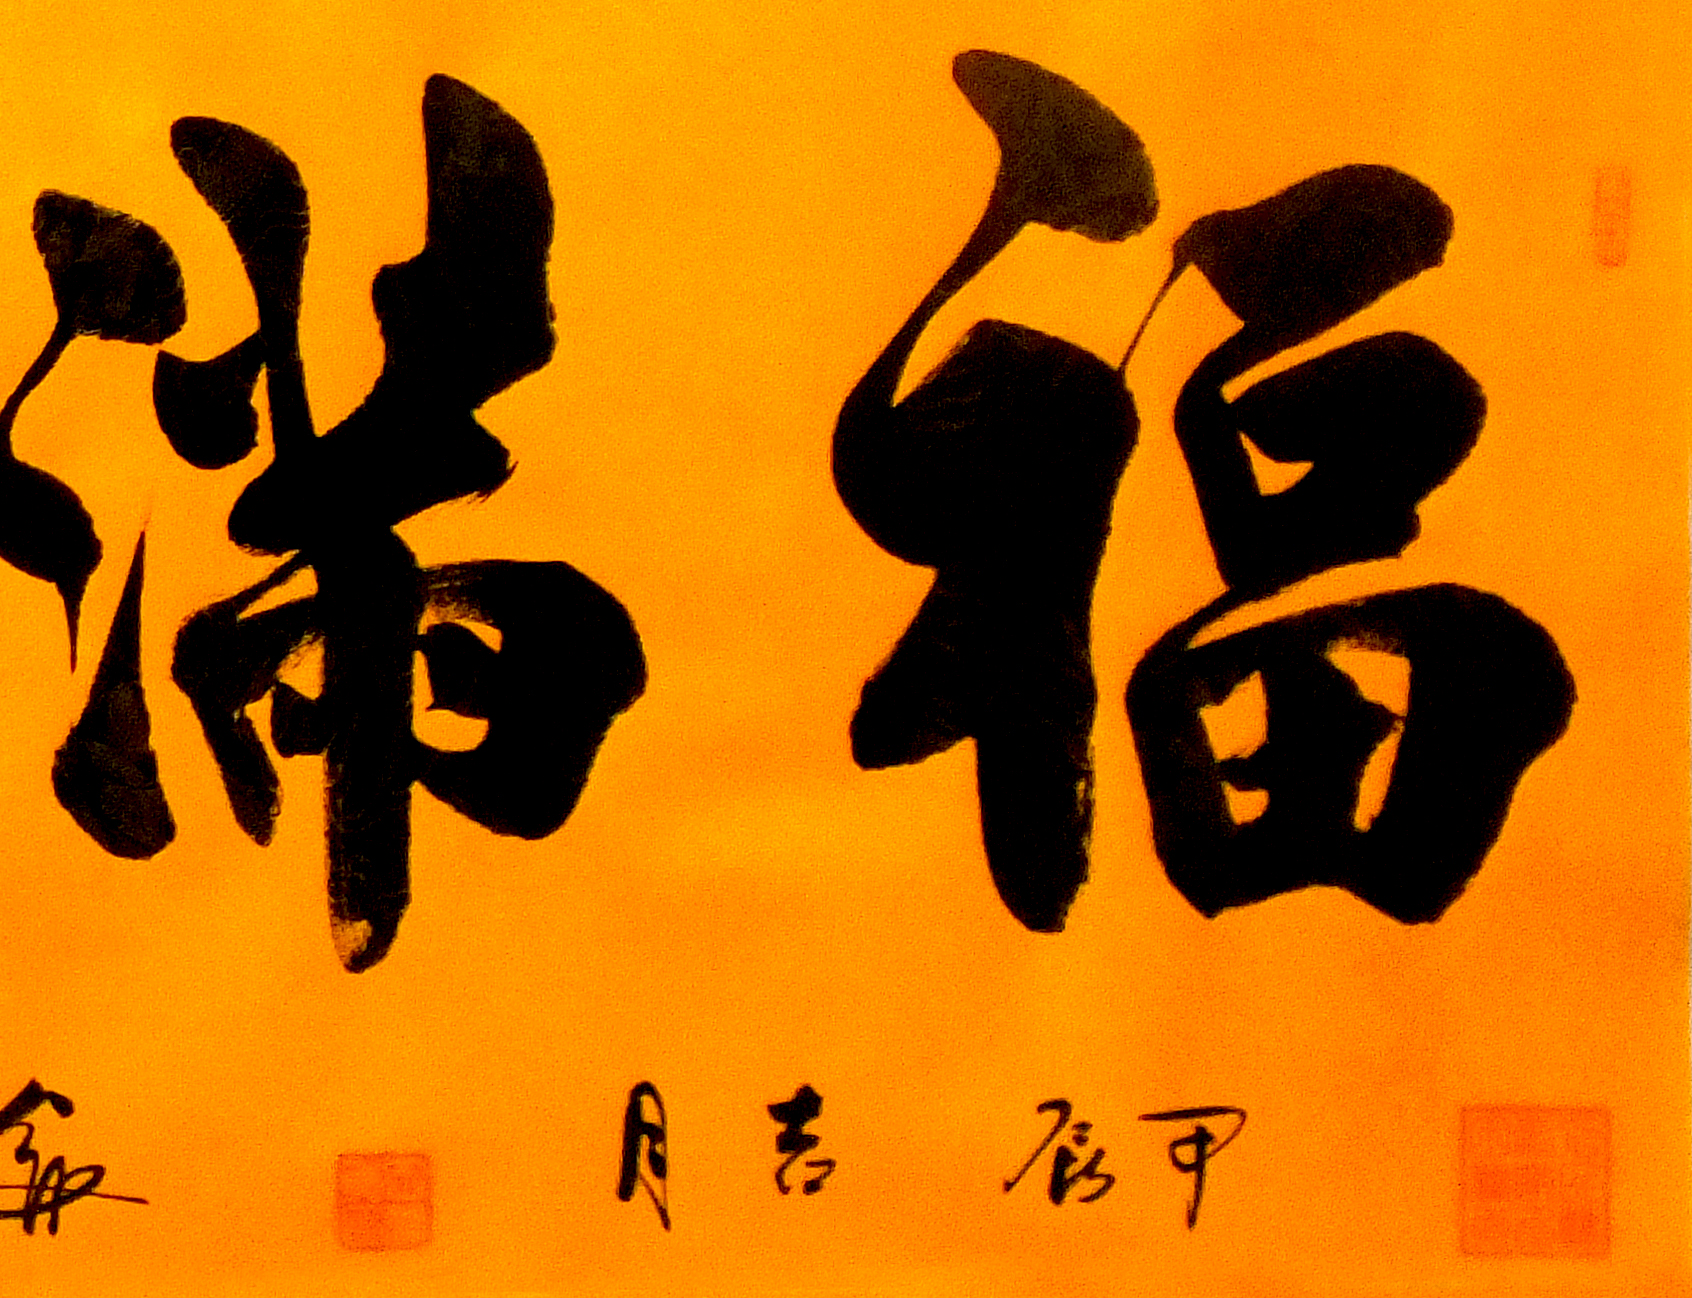 福滿
甲辰吉月